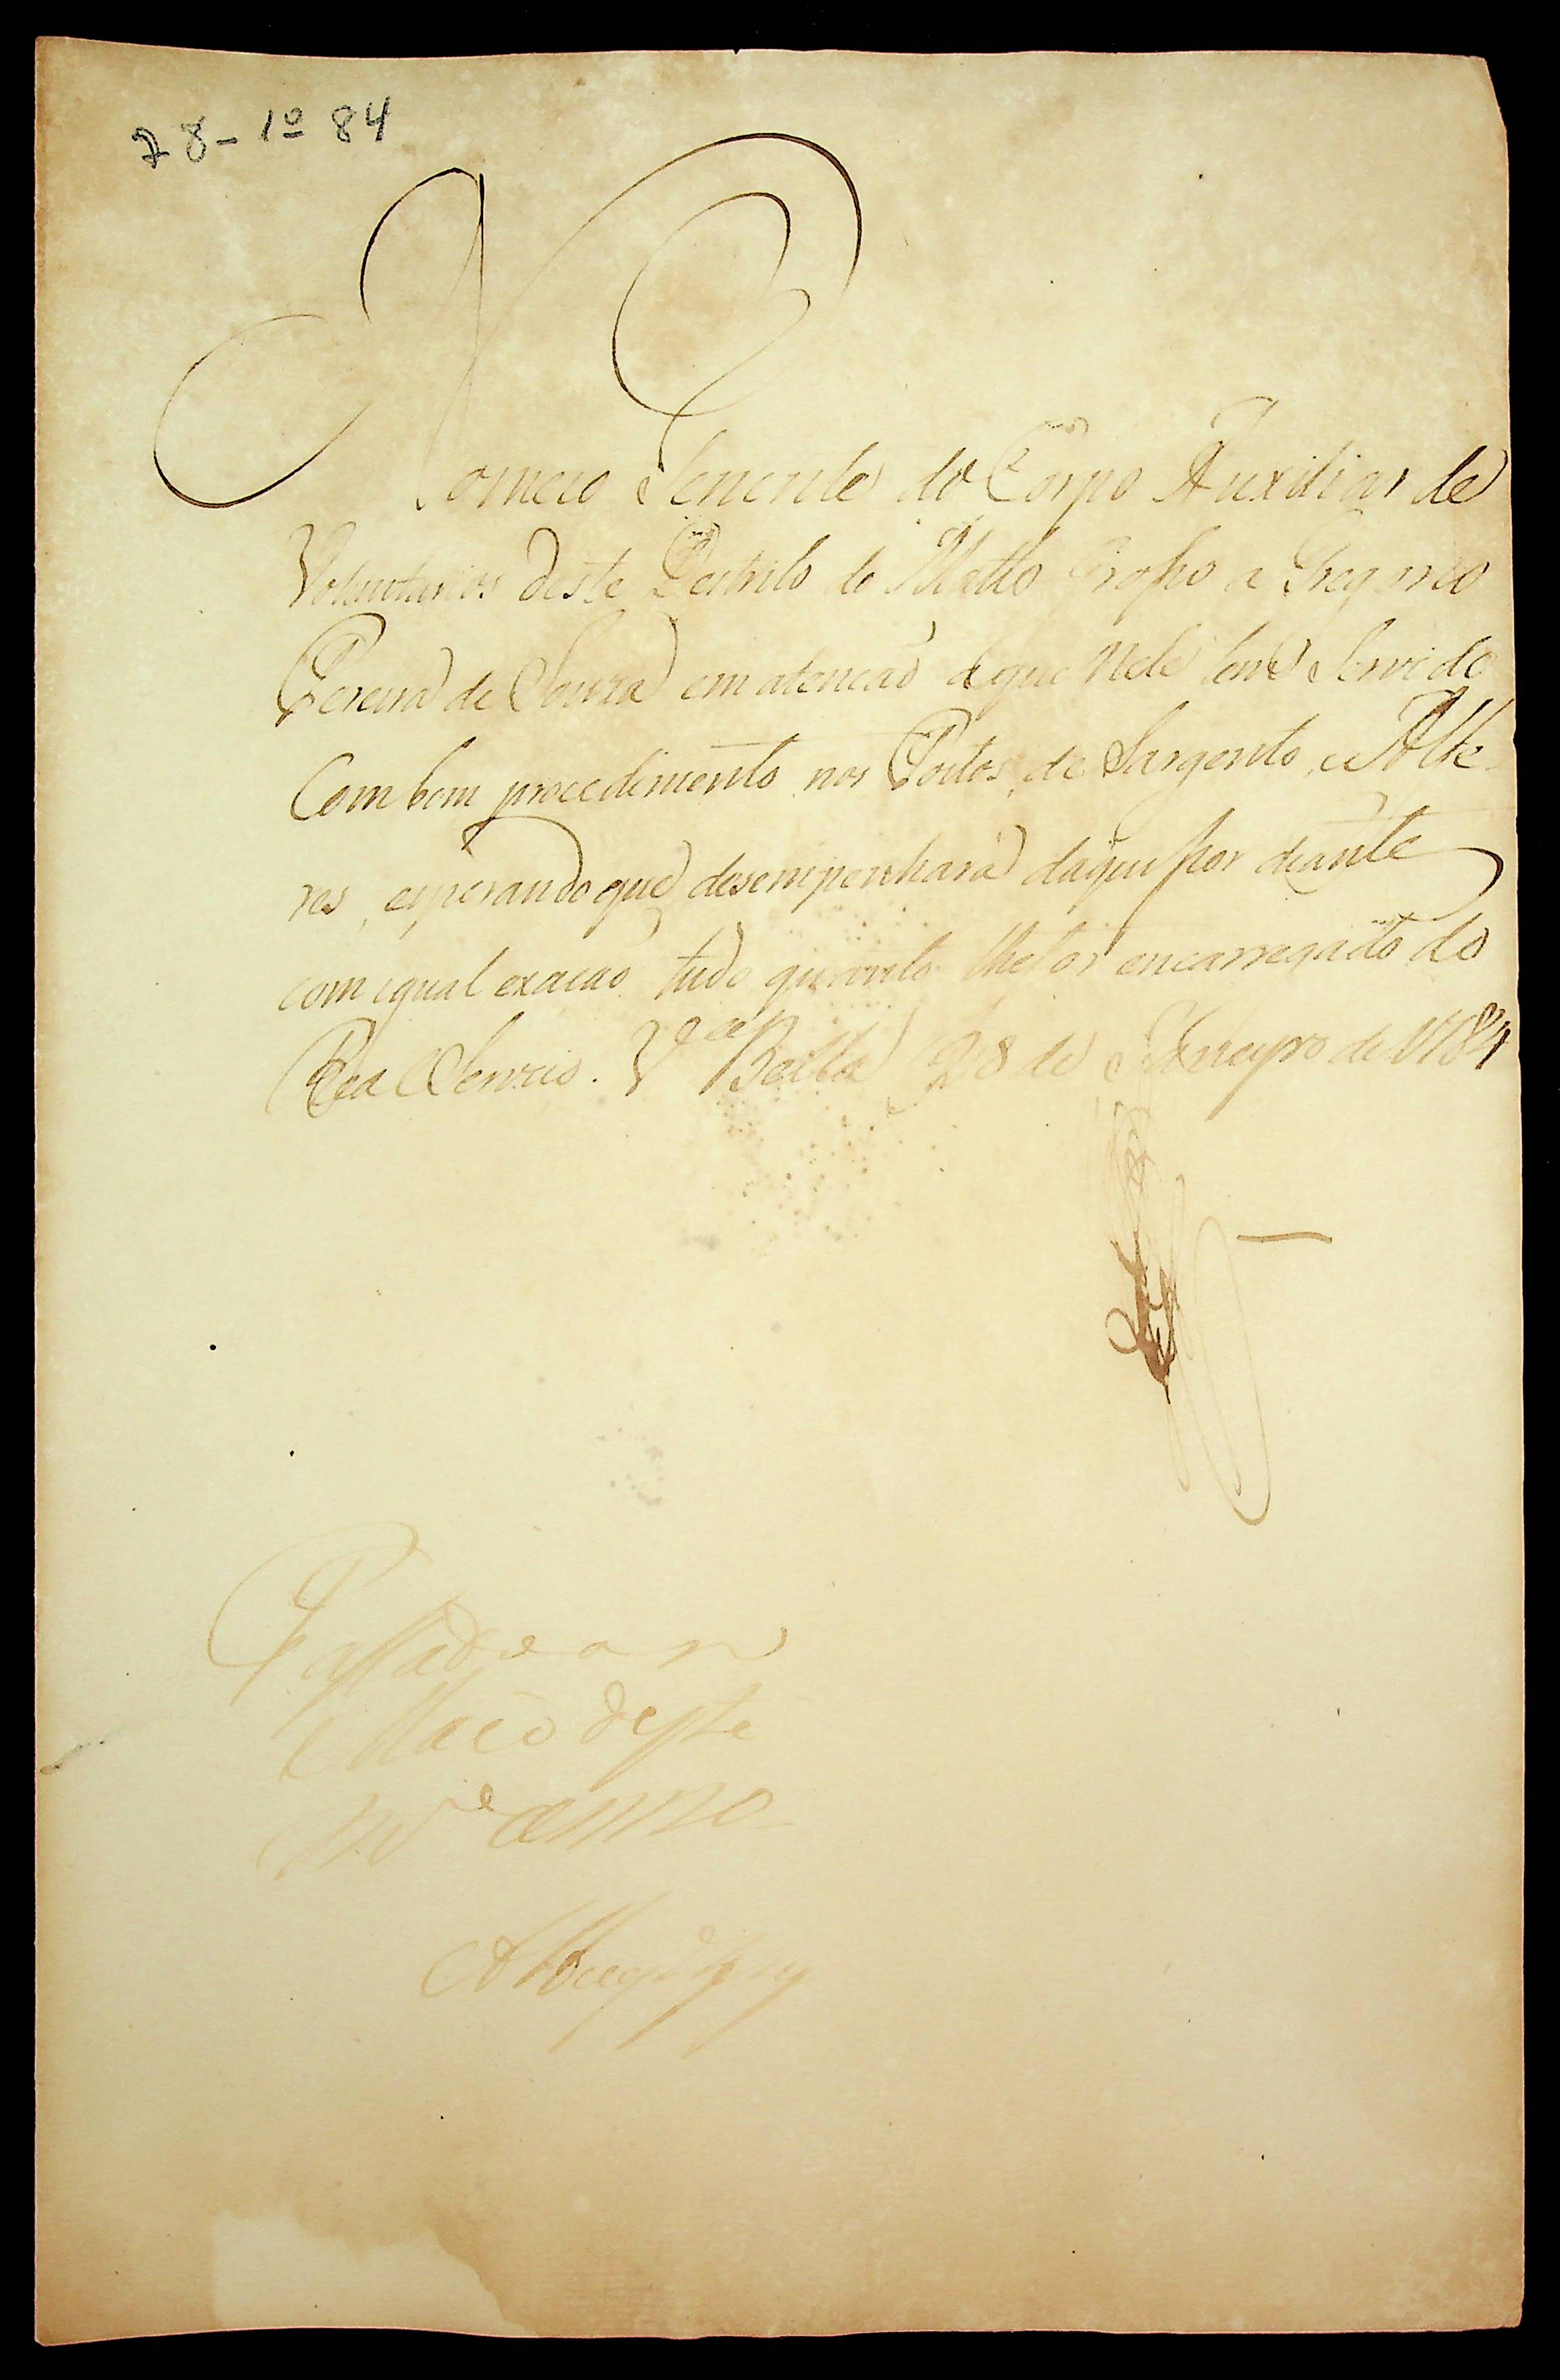 28-1º 84
Nomeio Tenente do Corpo Auxiliar de
Voluntarios deste Destrito de Matto Grosso a Gregorio
Pereira de Souza em atencaõ aque Nele tem Servido
Com bom procedimento nos Postos de Sargento, e Alfe-
res, esperando que desempenhará daqui por diante
com igual exacaõ tudo quanto lhe for encarregado do
Real Servico. Vª Bella 28 de Janeyro de 1784
deste
anno